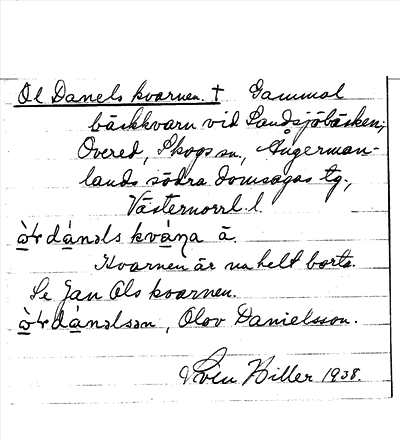 Ol Danels kvarnen. † Gammal
bäckkvarn vid Sandsjöbäcken,
Övered, Skogs sn, Ångerman-
lands södra domsagas tg.,
Västernorrl. l.
dánəls kvána ā.
Kvarnen är nu helt borta.
Se Jan Ols kvarnen.
dánəlsən, Olov Danielsson.
Sven Hiller 1938.